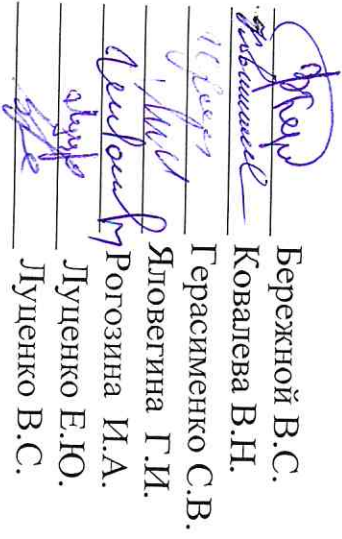 Бережной В.С.
Ковалева В.Н.
Герасименко С.В.
Яловегина Г.И.
Рогозина И.А.
Луценко Е.Ю.
Луценко В.С.